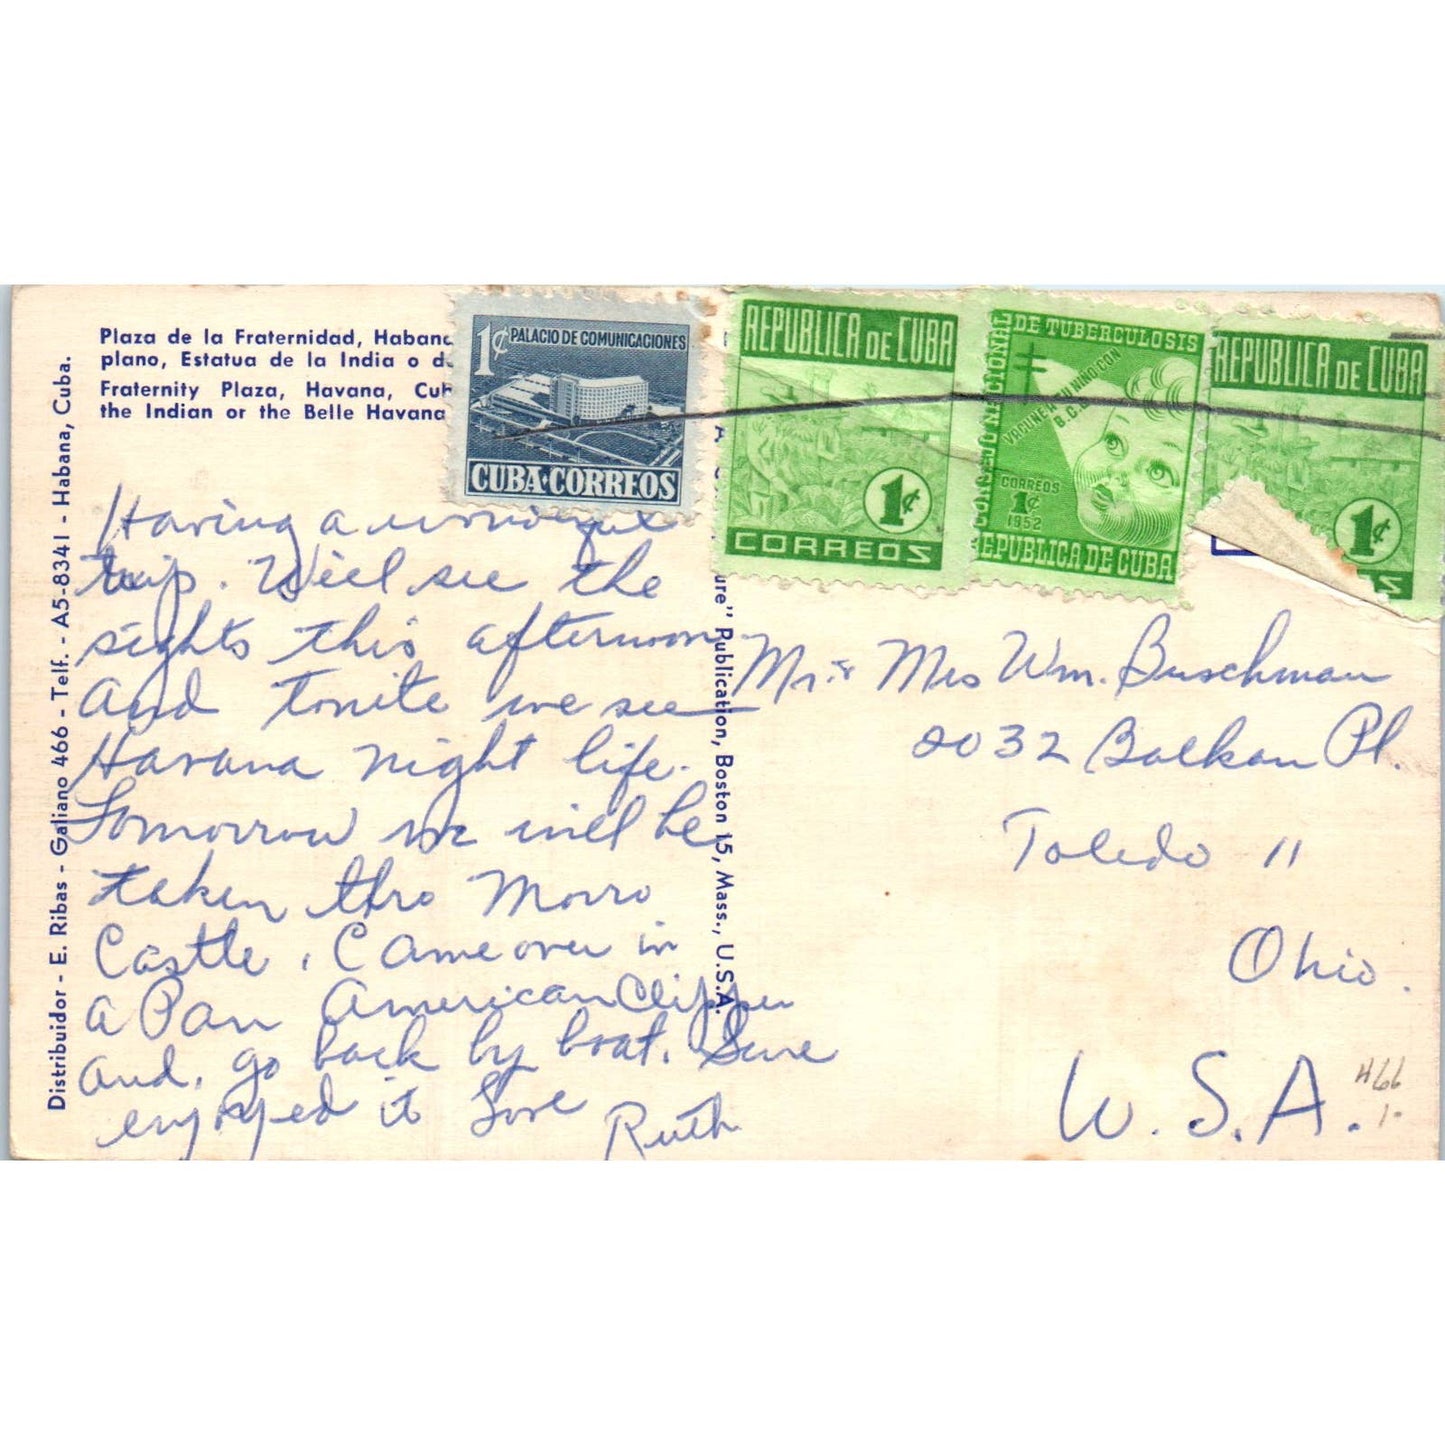 Plaza de la Fraternidad, Habana
plano, Estatua de la India o d
Fraternity Plaza, Havana, Cub
the Indian or the Belle Havana
Distribuidor - E. Ribas - Galiano 466 - Telf. - A5-8341 - Habana, Cuba.
1¢ PALACIO DE COMUNICACIONES
CUBA·CORREOS
REPUBLICA DE CUBA
1¢
CORREOS
CONSEJO NACIONAL
DE TUBERCULOSIS
VACUNE A SU NINO CON
B.C.G.
CORREOS
1¢
1952
REPUBLICA DE CUBA
REPUBLICA DE CUBA
1¢
S
ure" Publication, Boston 15, Mass., U.S.A.
Having a wonderful
trip. Will see the
sights this afternoon
and tonite we see
Havana night life.
Tomorrow we will be
taken thro Morro
Castle. Came over in
a Pan American Clipper
and, go back by boat. Sure
enjoyed it Love
Ruth
Mr. & Mrs Wm. Buschman
2032 Balkan Pl.
Toledo 11
Ohio.
U.S.A.
466
1-